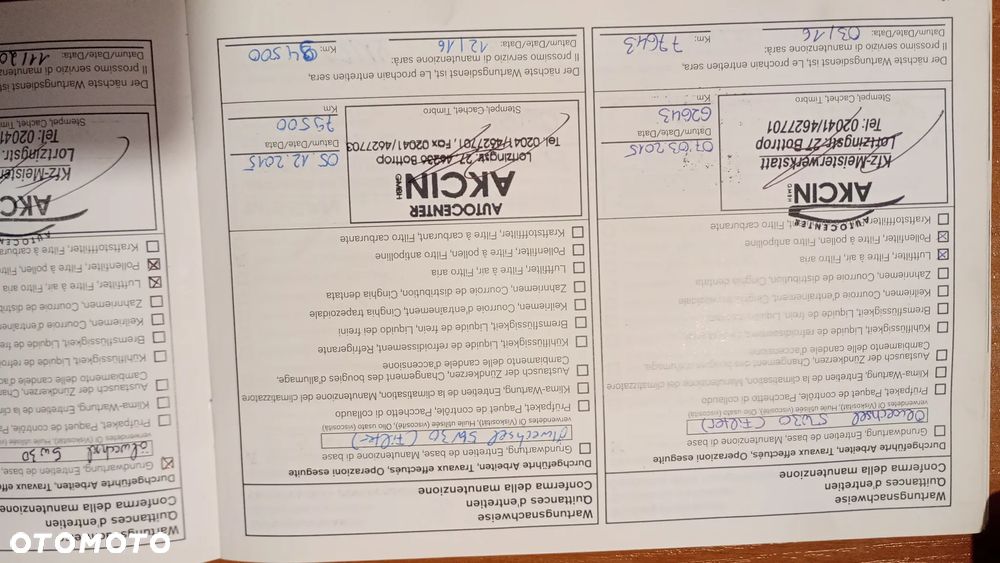 Wartungsnachweise
Quittances d'entretien
Conferma della manutenzione
Durchgeführte Arbeiten, Travaux, effectués, Operazioni eseguite
Grundwartung, Entretien de base, Manutenzione di base
Ölwechsel 5W30 (Filter)
verwendetes Öl (Viskosität), Huile utilisée (viscosité), Olio usato (viscosità)
Prüfpaket, Paquet de contrôle, Pacchetto di collaudo
Klima-Wartung, Entretien de la climatisation, Manutenzione del climatizzatore
Austausch der Zündkerzen, Changement des bougies d'allumage,
Cambiamento delle candele d'accensione
Kühlflüssigkeit, Liquide de refroidissement,
Bremsflüssigkeit, Liquide de frein, Liquido
Keilriemen, Courroie d'entraînement, Cinghia trapezoidale
Zahnriemen, Courroie de distribution, Cinghia dentata
Luftfilter, Filtre à air, Filtro aria
Pollenfilter, Filtre à pollen, Filtro antipolline
Kraftstofffilter, Filtre à carburant, Filtro carburante
AUTOCENTER
AKCIN
GMBH
Kfz-Meisterwerkstatt
Lortzingstr. 27 Bottrop
Tel: 02041/4627701
Stempel, Cachet, Timbro
07.03.2015
Datum/Date/Data
62643
Km
Der nächste Wartungsdienst ist, Le prochain entretien sera,
Il prossimo servizio di manutenzione sarà:
Datum/Date/Data: 03/16
Km: 77643
Wartungsnachweise
Quittances d'entretien
Conferma della manutenzione
Durchgeführte Arbeiten, Travaux, effectués, Operazioni eseguite
Grundwartung, Entretien de base, Manutenzione di base
Ölwechsel 5W30 (Filter)
verwendetes Öl (Viskosität), Huile utilisée (viscosité), Olio usato (viscosità)
Prüfpaket, Paquet de contrôle, Pacchetto di collaudo
Klima-Wartung, Entretien de la climatisation, Manutenzione del climatizzatore
Austausch der Zündkerzen, Changement des bougies d'allumage,
Cambiamento delle candele d'accensione
Kühlflüssigkeit, Liquide de refroidissement, Refrigerante
Bremsflüssigkeit, Liquide de frein, Liquido dei freini
Keilriemen, Courroie d'entraînement, Cinghia trapezoidale
Zahnriemen, Courroie de distribution, Cinghia dentata
Luftfilter, Filtre à air, Filtro aria
Pollenfilter, Filtre à pollen, Filtro antipolline
Kraftstofffilter, Filtre à carburant, Filtro carburante
AUTOCENTER
AKCIN
GMBH
Lortzingstr. 27, 46236 Bottrop
Tel. 02041/4627701, Fax 02041/4627703
Stempel, Cachet, Timbro
05.12.2015
Datum/Date/Data
79500
Km
Der nächste Wartungsdienst ist, Le prochain entretien sera,
Il prossimo servizio di manutenzione sarà:
Datum/Date/Data: 12/16
Km: 94500
Quittances d'entretien
Conferma della manutenzione
Durchgeführte Arbeiten, Travaux
Grundwartung, Entretien de base,
Ölwechsel 5W30
Prüfpaket, Paquet de contrôle
Klima-Wartung, Entretien de la
Austausch der Zündkerzen,
Cambiamento delle candele
Kühlflüssigkeit, Liquide de
Bremsflüssigkeit, Liquide de
Keilriemen, Courroie
Zahnriemen, Courroie de
Luftfilter, Filtre à air, Filtro aria
Pollenfilter, Filtre à pollen,
Kraftstofffilter, Filtre à
AUTOCENTER
AKCIN
Lortzingstr.
Stempel, Cachet, Timbro
Der nächste Wartungsdienst ist,
Il prossimo servizio di
Datum/Date/Data:
OTOMOTO